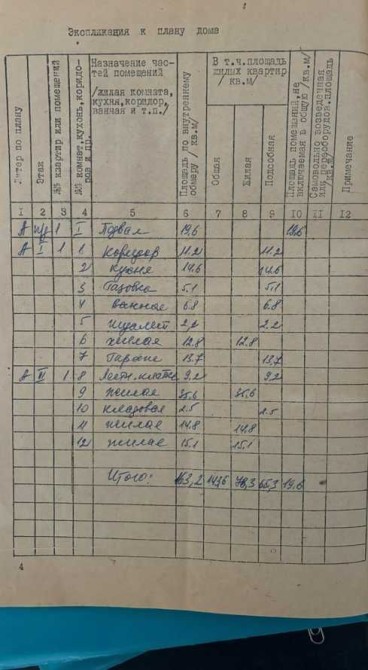 Экспликация к плану дома
Литер по плану
Этаж
№№ квартир или помещений
№№ комнат, кухонь, коридо-
ров и др.
Назначение час-
тей помещений
/жилая комната,
кухня, коридор,
ванная и т.п./
Площадь по внутреннему
обмеру /кв.м/
В т.ч. площадь
жилых квартир
/кв.м/
Общая
Жилая
Подсобная
Площадь помещений, не
включаемая в общую /кв.м/
Самовольно возведенная
или переоборудов. площадь
кв.м
Примечание
1 2 3 4 5 6 7 8 9 10 11 12
А 1 I Подвал 19.6 19.6
А I 1 1 Коридор 11.2 11.2
2 Кухня 14.6 14.6
3 5.1 5.1
4 ванная 6.8 6.8
5 туалет 2.2 2.2
6 жилая 12.8 12.8
7 Гараж 13.7 13.7
А II 1 8 Лестн. клетка 9.2 9.2
9 жилая 35.6 35.6
10 кладовая 2.5 2.5
11 жилая 14.8 14.8
12 жилая 15.1 15.1
Итого: 163,2 78,3 65,3 19.6
4